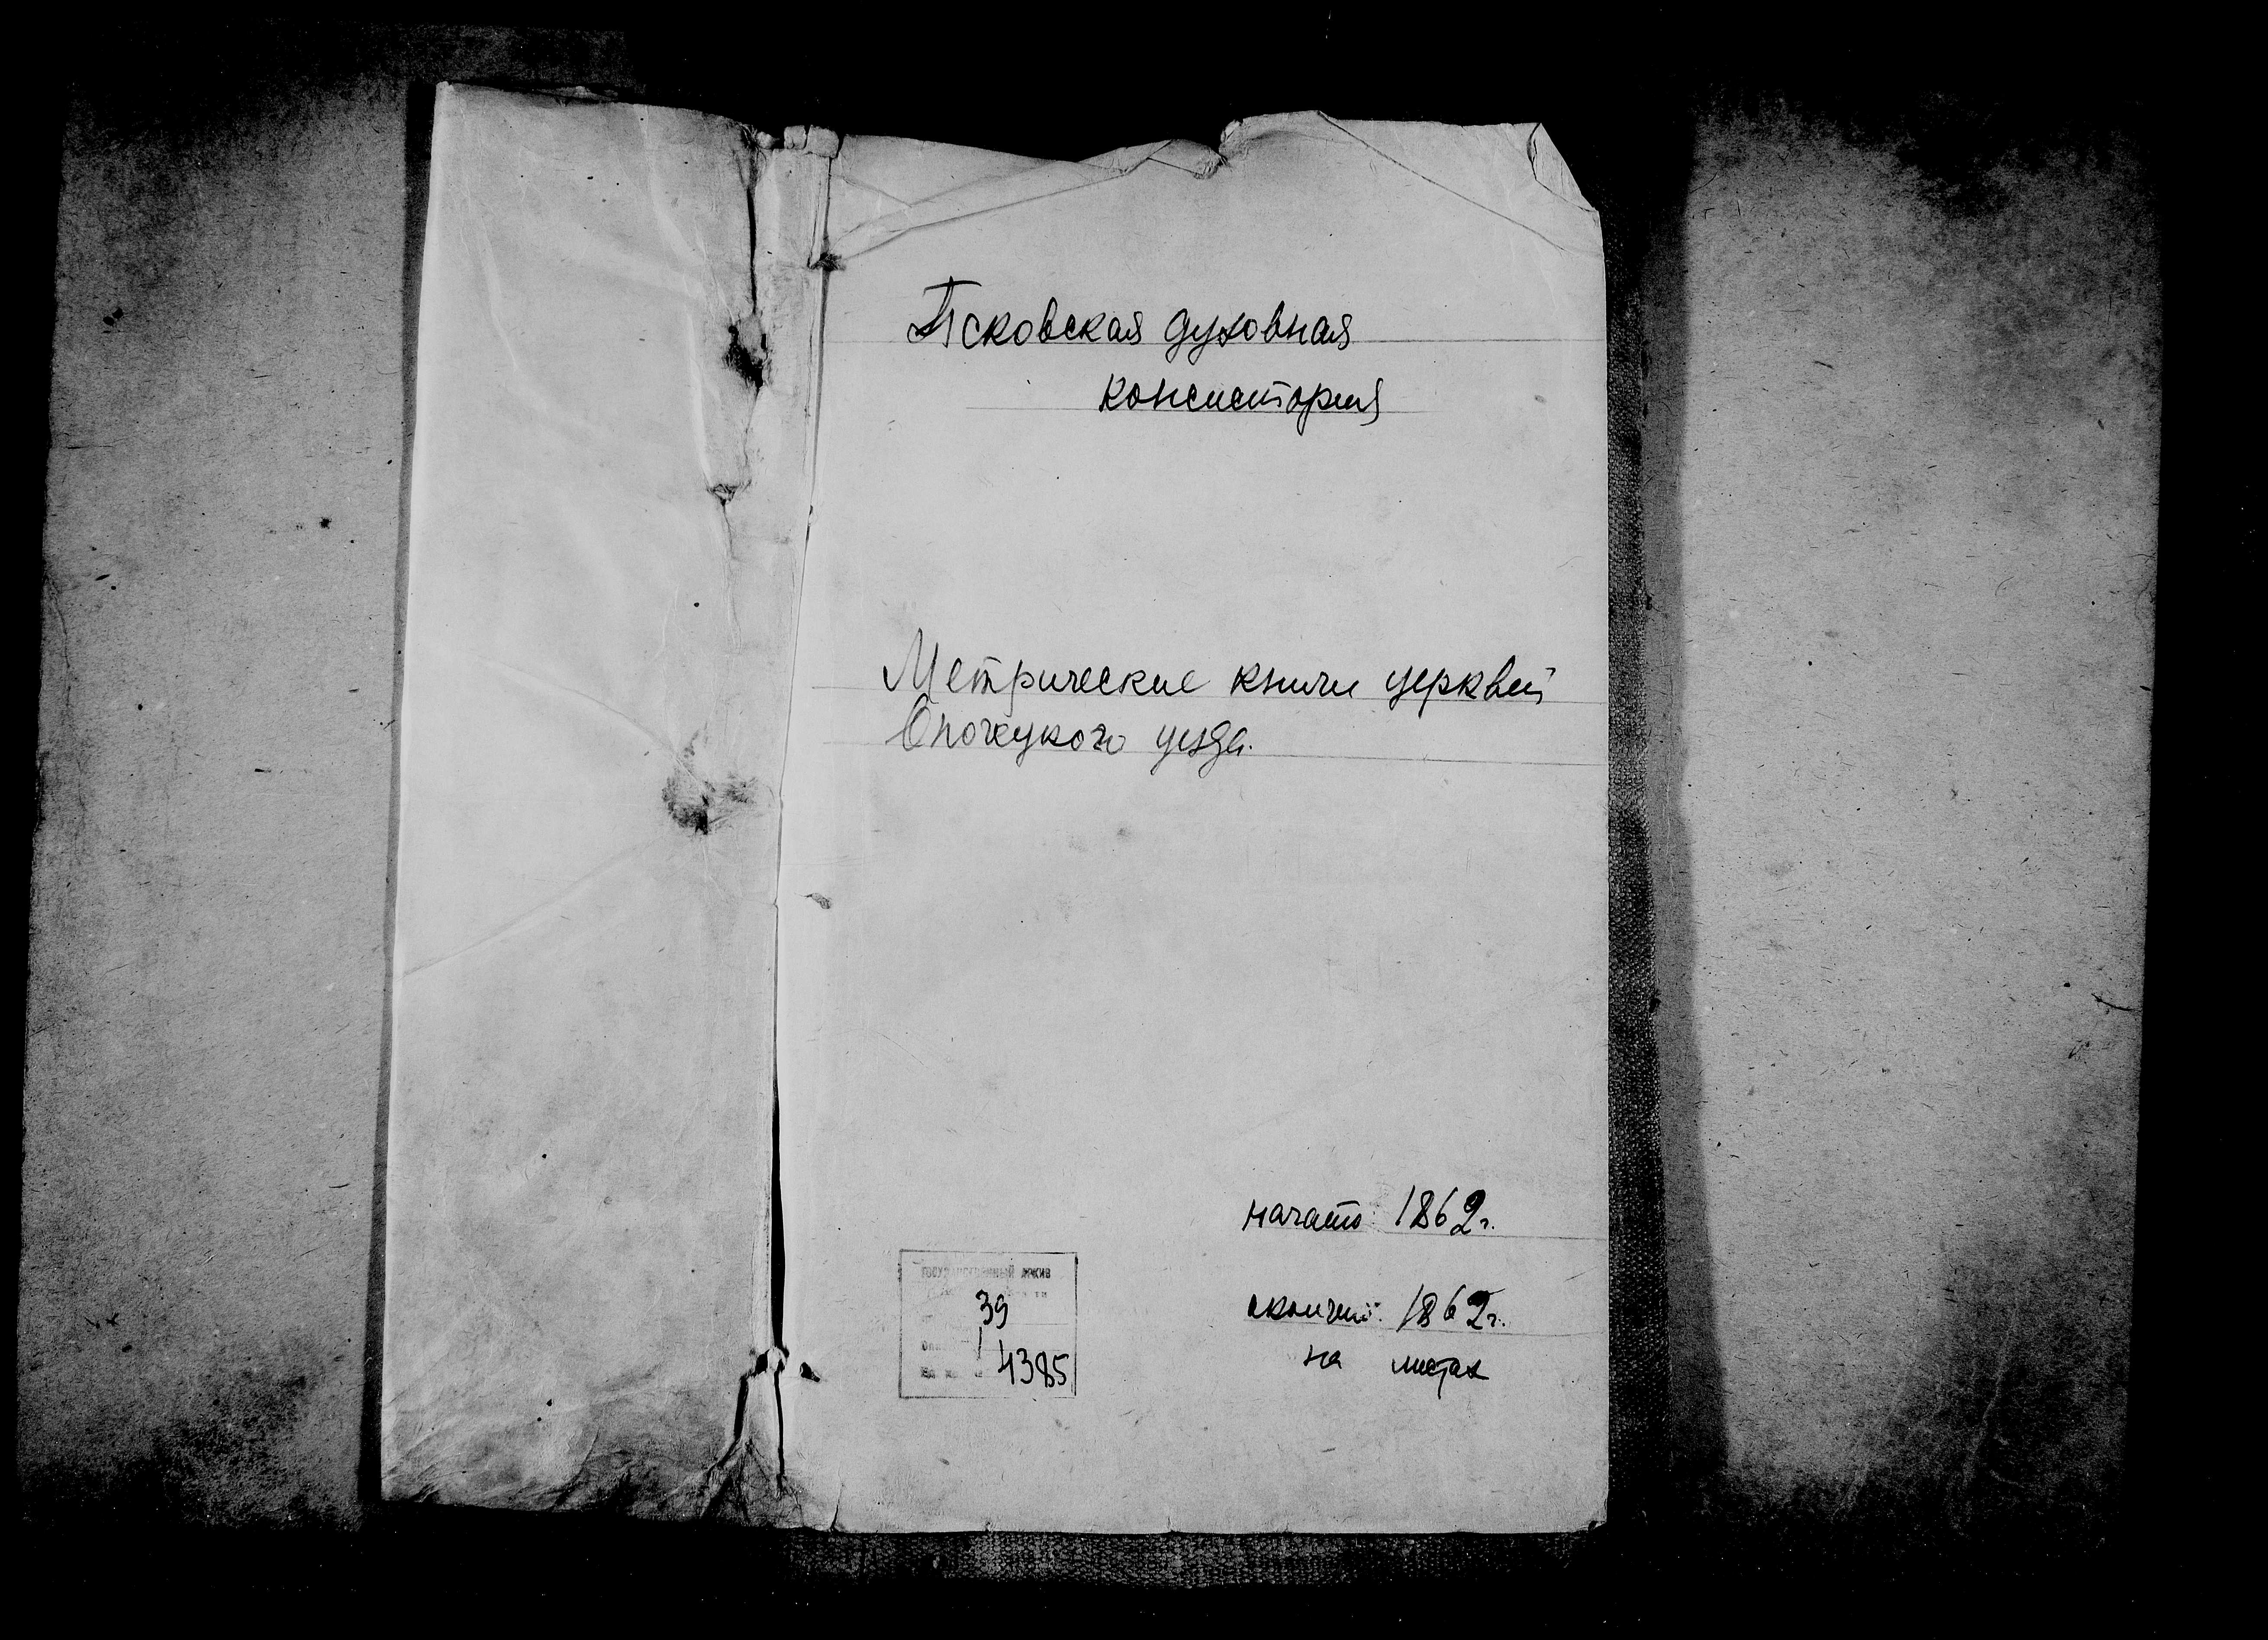 Псковская духовная
консистория
Метрические книги церквей
Опочецкого уезда.
начато: 1862г.
окончено: 1862г.
на листах
Государственный архив
39
1
4385